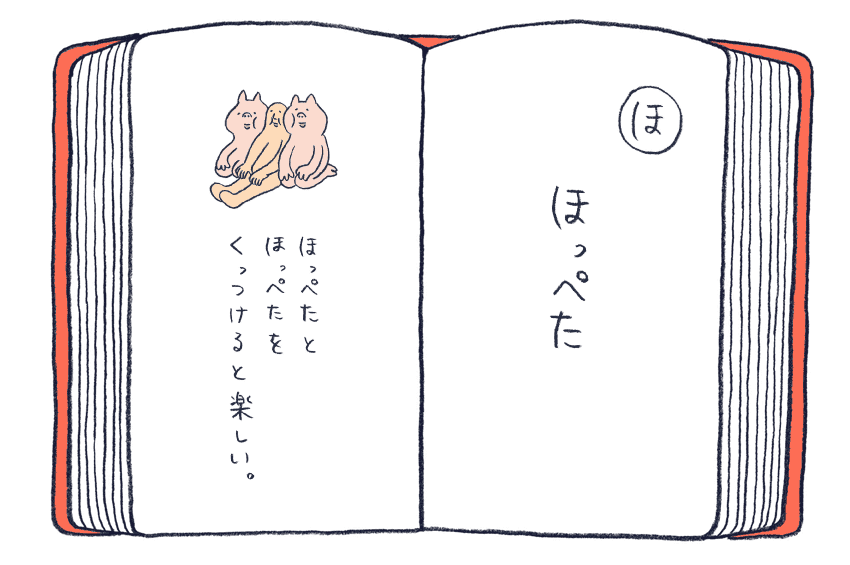 ほ
ほっぺた
ほっぺたと
ほっぺたを
くっつけると楽しい。